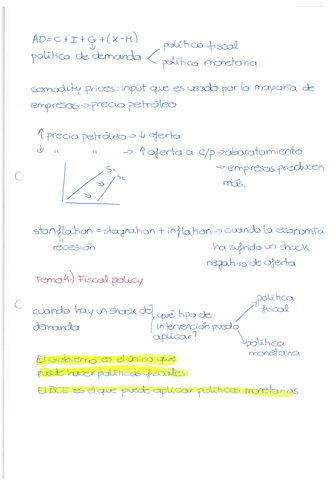 AD = C + I + G + (X-M)
política de demanda
política fiscal
política monetaria
comodity prices: input que es usado por la mayoría de
empresas → precio petróleo
↑ precio petróleo → ↓ oferta
↓ " " → ↑ oferta a c/p → abaratamiento
→ empresas producen
más.
S1
S2
stanflation = stagnation + inflation → cuando la economía
recesión
ha sufrido un shock
negativo de oferta
Tema 4) Fiscal policy
cuando hay un shock de
demanda
¿qué tipo de
intervención puedo
aplicar?
política
fiscal
política
monetaria
El Gobierno es el único que
puede hacer políticas fiscales
El BCE es el que puede aplicar políticas monetarias